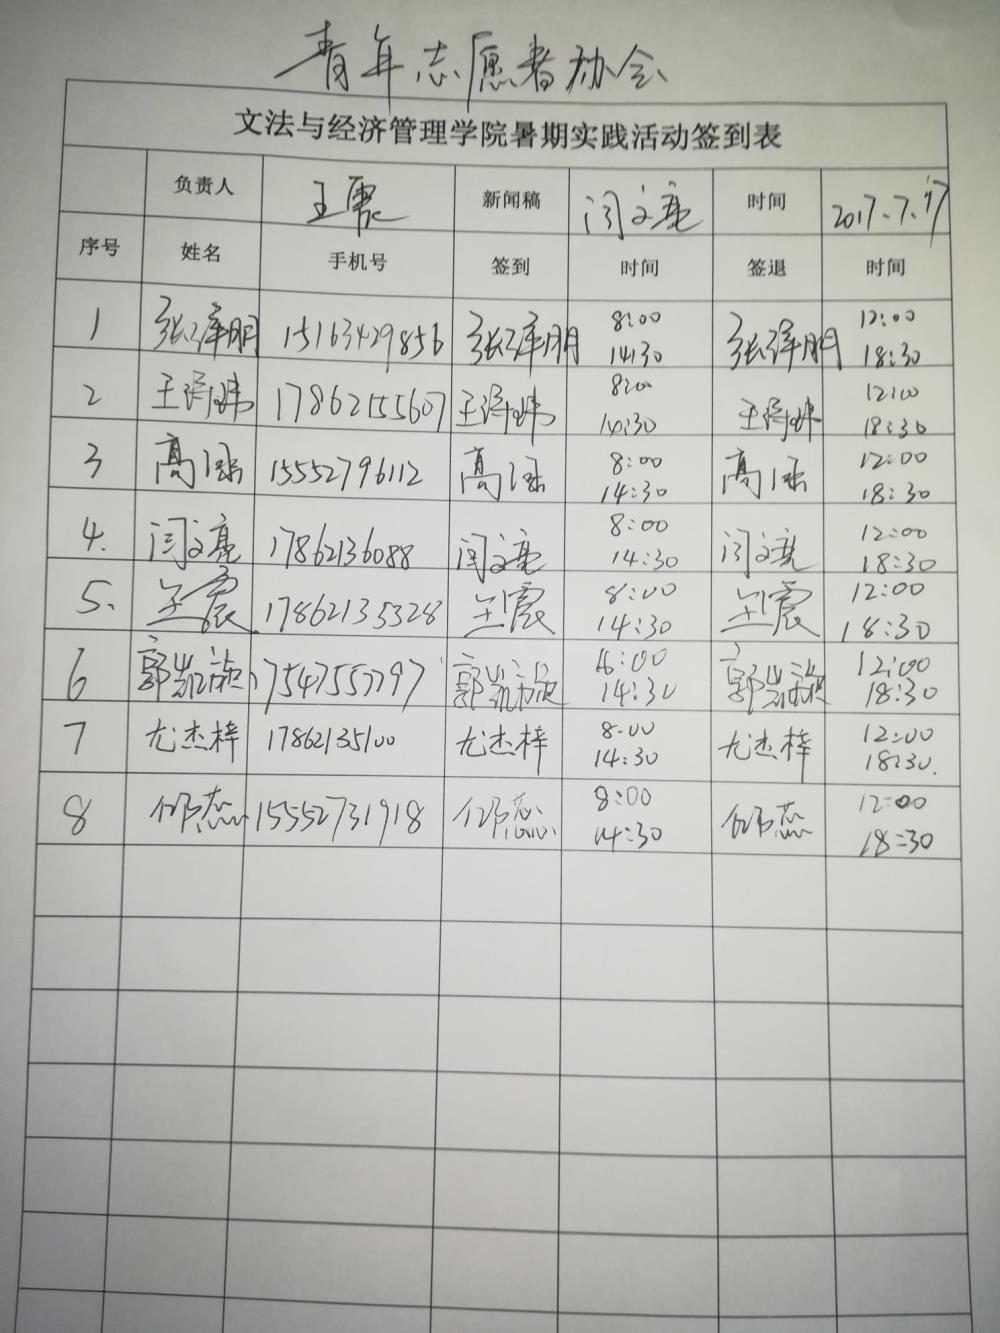 青年志愿者协会
文法与经济管理学院暑期实践活动签到表
负责人 王震 新闻稿 闫文亮 时间 2017.7.17
序号 姓名 手机号 签到 时间 签退 时间
1 张泽朋 15163429856 张泽朋 8:00 14:30 张泽朋 12:00 18:30
2 王 17862155607 王 8:00 14:30 王 12:00 18:30
3 高 15552796112 高 8:00 14:30 高 12:00 18:30
4. 闫文亮 17862136088 闫文亮 8:00 14:30 闫文亮 12:00 18:30
5. 王震 17862135328 王震 8:00 14:30 王震 12:00 18:30
6 郭凯 郭凯 14:30 郭凯 12:00 18:30
7 尤杰梓 17862135100 尤杰梓 8:00 14:30 尤杰梓 12:00 18:30.
8 邱蕊 15552731918 邱蕊 8:00 14:30 邱蕊 12:00 18:30